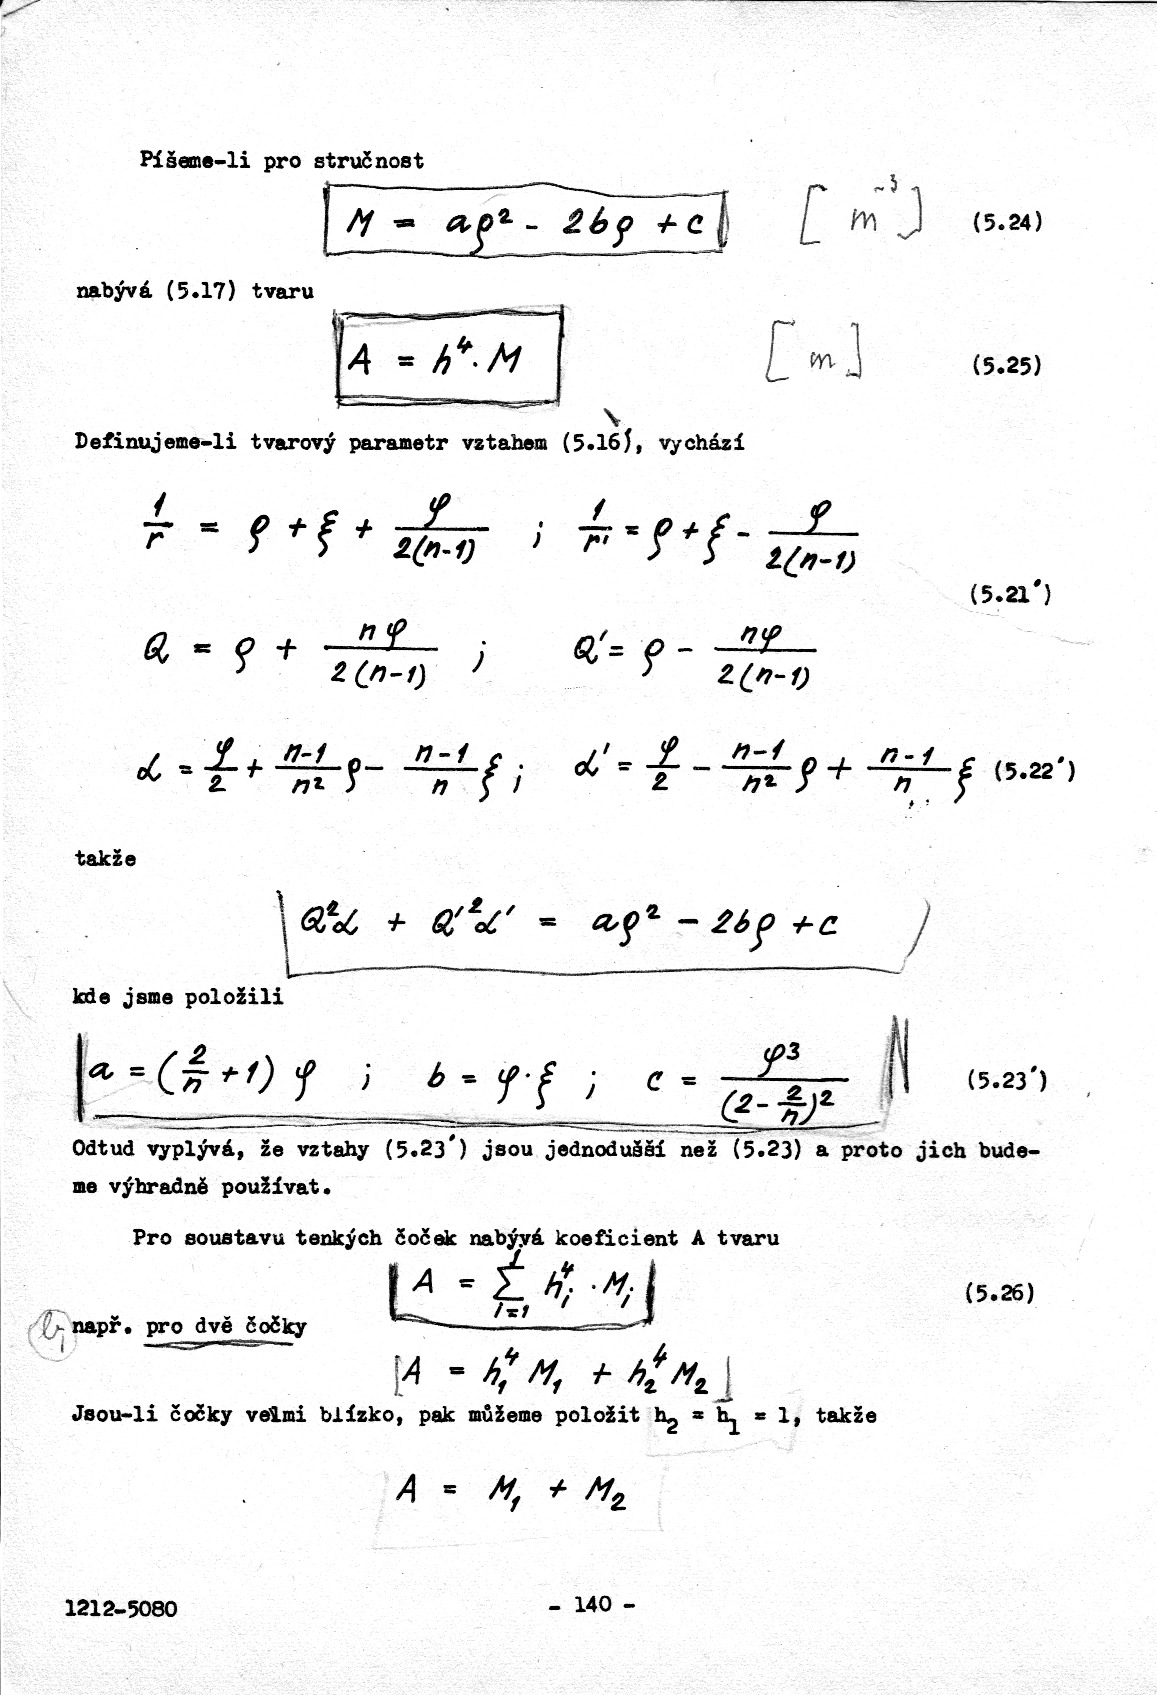 Píšeme-li pro stručnost
M = aρ² - 2bρ + c [m⁻³] (5.24)
nabývá (5.17) tvaru
A = h⁴. M [m] (5.25)
Definujeme-li tvarový parametr vztahem (5.16'), vychází
1/r = ρ + ξ + φ/2(n-1) ; 1/r' = ρ + ξ - φ/2(n-1)
(5.21')
Q = ρ + nφ/2(n-1) ; Q' = ρ - nφ/2(n-1)
α = φ/2 + n-1/n² ρ - n-1/n ξ ; α' = φ/2 - n-1/n² ρ + n-1/n ξ (5.22')
takže
Q²α + Q'²α' = aρ² - 2bρ + c
kde jsme položili
a = (2/n + 1) φ ; b = φ·ξ ; c = φ³/(2-2/n)² (5.23')
Odtud vyplývá, že vztahy (5.23') jsou jednodušší než (5.23) a proto jich bude-
me výhradně používat.
Pro soustavu tenkých čoček nabývá koeficient A tvaru
A = Σ h⁴ᵢ · Mᵢ (5.26)
i=1
např. pro dvě čočky
A = h₁⁴ M₁ + h₂⁴ M₂
Jsou-li čočky velmi blízko, pak můžeme položit h₂ = h₁ = 1, takže
A = M₁ + M₂
1212-5080 - 140 -